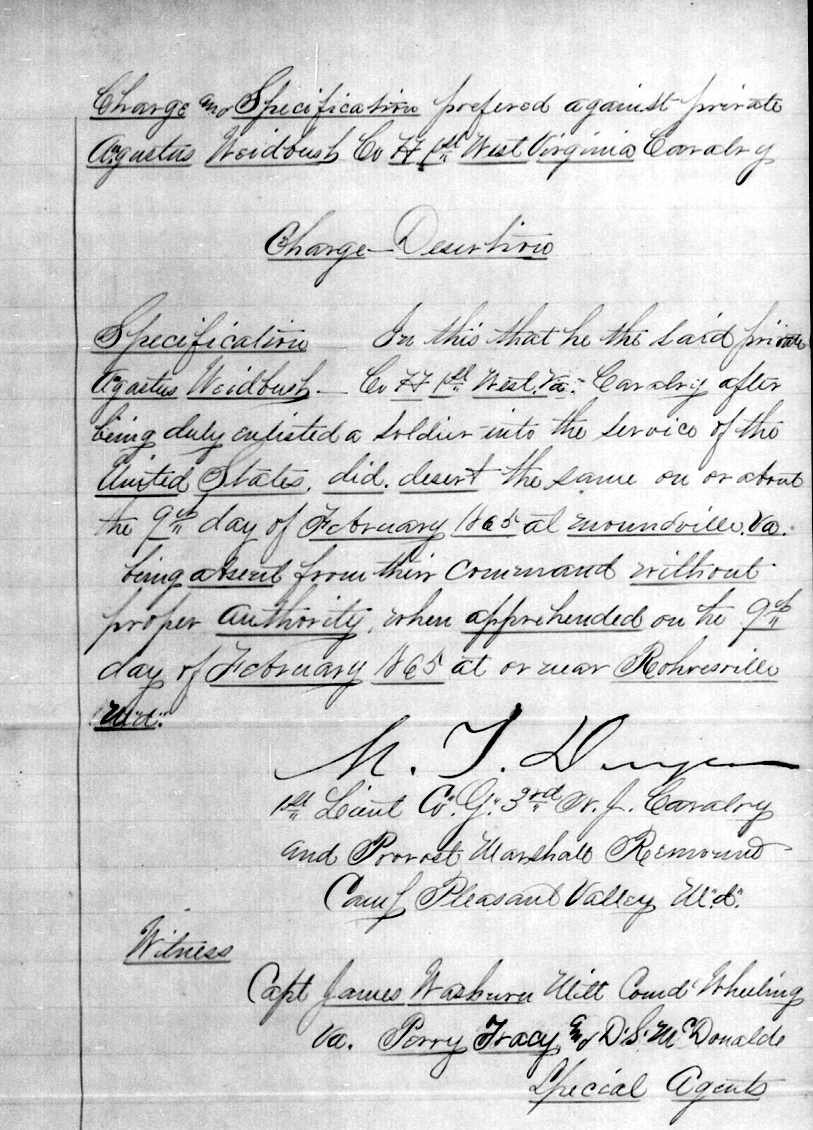 Charge and Specification prefered against private
Agustus Weidbush Co H 1st West Virginia Cavalry
Charge Desertion
Specification In this that he the said private
Agastus Weidbush Co H 1st West. Va. Cavalry after
being duly enlisted a soldier into the service of the
United States, did. desert the same on or about
the 9th day of February 1865 at moundville. Va.
being absent from their command without
proper authority, when apprehended on the 9th
day of February 1865 at or near Rohresville
Md.
M. T.
1st Lieut Co. G. 3rd N. J. Cavalry
and Provost Marshall Remount
Camp Pleasant Valley Md.
Witness
Capt James Washurn Milt Comd Wheeling
Va. Perry Tracy and D. S. McDonalds
Special Agents